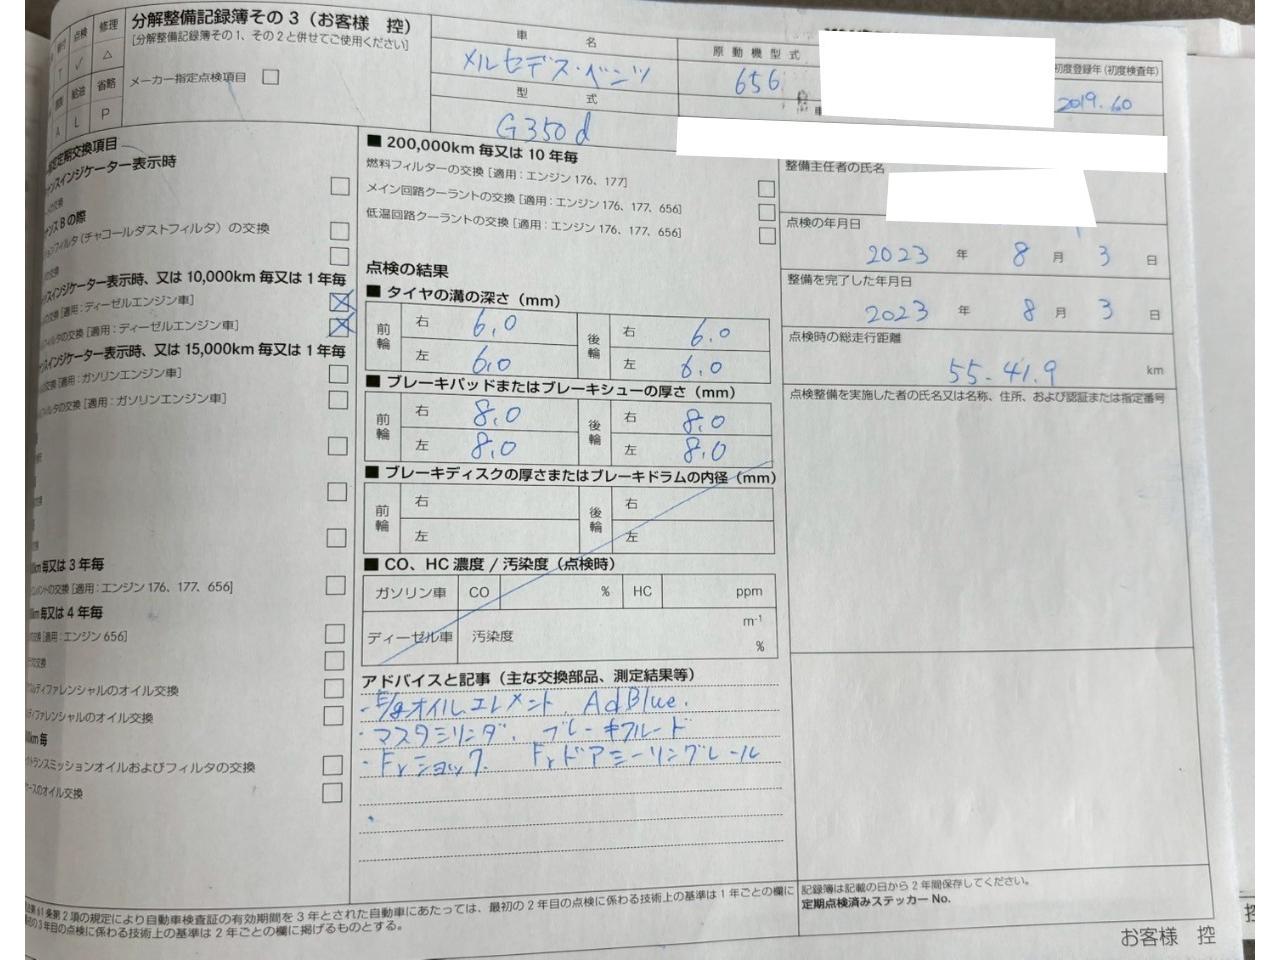 点検 修理
✓ △
給油 省略
A L P
分解整備記録簿その3(お客様 控)
[分解整備記録簿その1、その2と併せてご使用ください]
メーカー指定点検項目
車 名
メルセデス・ベンツ
型 式
G350d
原動機型式
656
初度登録年(初度検査年)
2019.60
整備主任者の氏名
点検の年月日
2023 年 8 月 3 日
整備を完了した年月日
2023 年 8 月 3 日
点検時の総走行距離
55.41.9 km
点検整備を実施した者の氏名又は名称、住所、および認証または指定番号
定期交換項目
ンスインジケーター表示時
の交換
ンスBの際
ョンフィルタ(チャコールダストフィルタ)の交換
交換
ンスインジケーター表示時、又は 10,000km 毎又は 1 年毎
の交換 [適用:ディーゼルエンジン車]
フィルタの交換 [適用:ディーゼルエンジン車]
ンスインジケーター表示時、又は 15,000km 毎又は 1 年毎
の交換 [適用:ガソリンエンジン車]
フィルタの交換 [適用:ガソリンエンジン車]
km 毎又は 3 年毎
の交換 [適用:エンジン 176、177、656]
km 毎又は 4 年毎
交換 [適用:エンジン 656]
の交換
ディファレンシャルのオイル交換
ディファレンシャルのオイル交換
km 毎
トランスミッションオイルおよびフィルタの交換
ースのオイル交換
■ 200,000km 毎又は 10 年毎
燃料フィルターの交換 [適用:エンジン 176、177]
メイン回路クーラントの交換 [適用:エンジン 176、177、656]
低温回路クーラントの交換 [適用:エンジン 176、177、656]
点検の結果
■ タイヤの溝の深さ(mm)
前輪 右 6.0 後輪 右 6.0
左 6.0 左 6.0
■ ブレーキパッドまたはブレーキシューの厚さ(mm)
前輪 右 8.0 後輪 右 8.0
左 8.0 左 8.0
■ ブレーキディスクの厚さまたはブレーキドラムの内径(mm)
前輪 右 後輪 右
左 左
■ CO、HC 濃度 / 汚染度(点検時)
ガソリン車 CO % HC ppm
ディーゼル車 汚染度 m⁻¹
%
アドバイスと記事(主な交換部品、測定結果等)
・E/gオイルエレメント、AdBlue.
・マスタシリンダ、ブレーキフルード
・Frショック. Frドアシーリングレール
第 2 項の規定により自動車検査証の有効期間を 3 年とされた自動車にあたっては、最初の 2 年目の点検に係わる技術上の基準は 1 年ごとの欄に
の 3 年目の点検に係わる技術上の基準は 2 年ごとの欄に掲げるものとする。
記録簿は記載の日から 2 年間保存してください。
定期点検済みステッカー No.
お客様 控